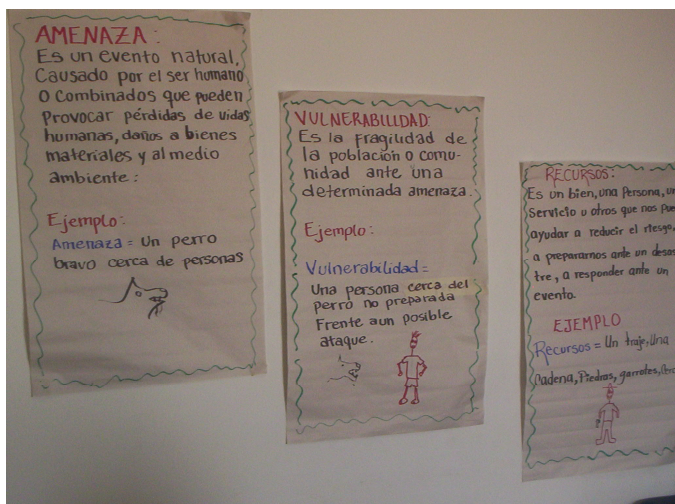 AMENAZA:
Es un evento natural,
Causado por el ser humano
O Combinados que pueden
Provocar pérdidas de vidas
humanas, daños a bienes
materiales y al medio
ambiente:
Ejemplo:
Amenaza = Un perro
bravo cerca de personas
VULNERABILIDAD:
Es la fragilidad de
la población o comu-
nidad ante una
determinada amenaza.
Ejemplo:
Vulnerabilidad=
Una persona cerca del
perro no preparada
Frente aun posible
ataque.
RECURSOS:
Es un bien, una Persona, un
Servicio u otros que nos pue
ayudar a reducir el riesgo,
a prepararnos ante un desas
tre, a responder ante un
evento.
EJEMPLO
Recursos = Un traje, Una
Cadena, Piedras, garrotes,